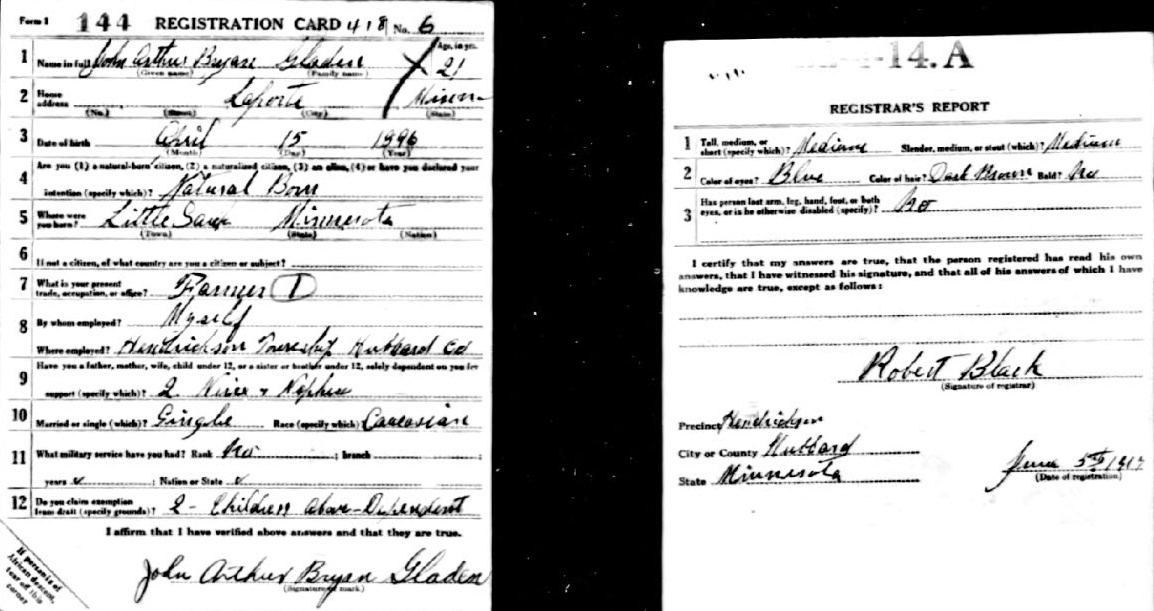 Form 1 144 REGISTRATION CARD 418 No. 6
1 Name in full John Arthur Bryan Gladen Age, in yrs. 21
(Given name) (Family name)
2 Home address Laporte Minn
(No.) (Street) (City) (State)
3 Date of birth April 15 1896
(Month) (Day) (Year)
Are you (1) a natural-born citizen, (2) a naturalized citizen, (3) an alien, (4) or have you declared your
4 intention (specify which)? Natural Born
5 Where were you born? Little Sauk Minnesota
(Town) (State) (Nation)
6 If not a citizen, of what country are you a citizen or subject?
7 What is your present trade, occupation, or office? Farmer 1
8 By whom employed? Myself
Where employed? Hendrickson Township Hubbard Co
9 Have you a father, mother, wife, child under 12, or a sister or brother under 12, solely dependent on you for
support (specify which)? 2 Niece & Nephew
10 Married or single (which)? Single Race (specify which)? Caucasian
11 What military service have you had? Rank No ; branch ;
years ; Nation or State
12 Do you claim exemption from draft (specify grounds)? 2 - Children above - Dependent
I affirm that I have verified above answers and that they are true.
John Arthur Bryan Gladen
(Signature or mark)
If person is of African descent, tear off this corner
14. A
REGISTRAR'S REPORT
1 Tall, medium, or short (specify which)? Medium Slender, medium, or stout (which)? Medium
2 Color of eyes? Blue Color of hair? Dark Brown Bald? No
3 Has person lost arm, leg, hand, foot, or both eyes, or is he otherwise disabled (specify)? No
I certify that my answers are true, that the person registered has read his own
answers, that I have witnessed his signature, and that all of his answers of which I have
knowledge are true, except as follows:
Robert Black
(Signature of registrar)
Precinct Hendrickson
City or County Hubbard
State Minnesota
June 5th 1917
(Date of registration)